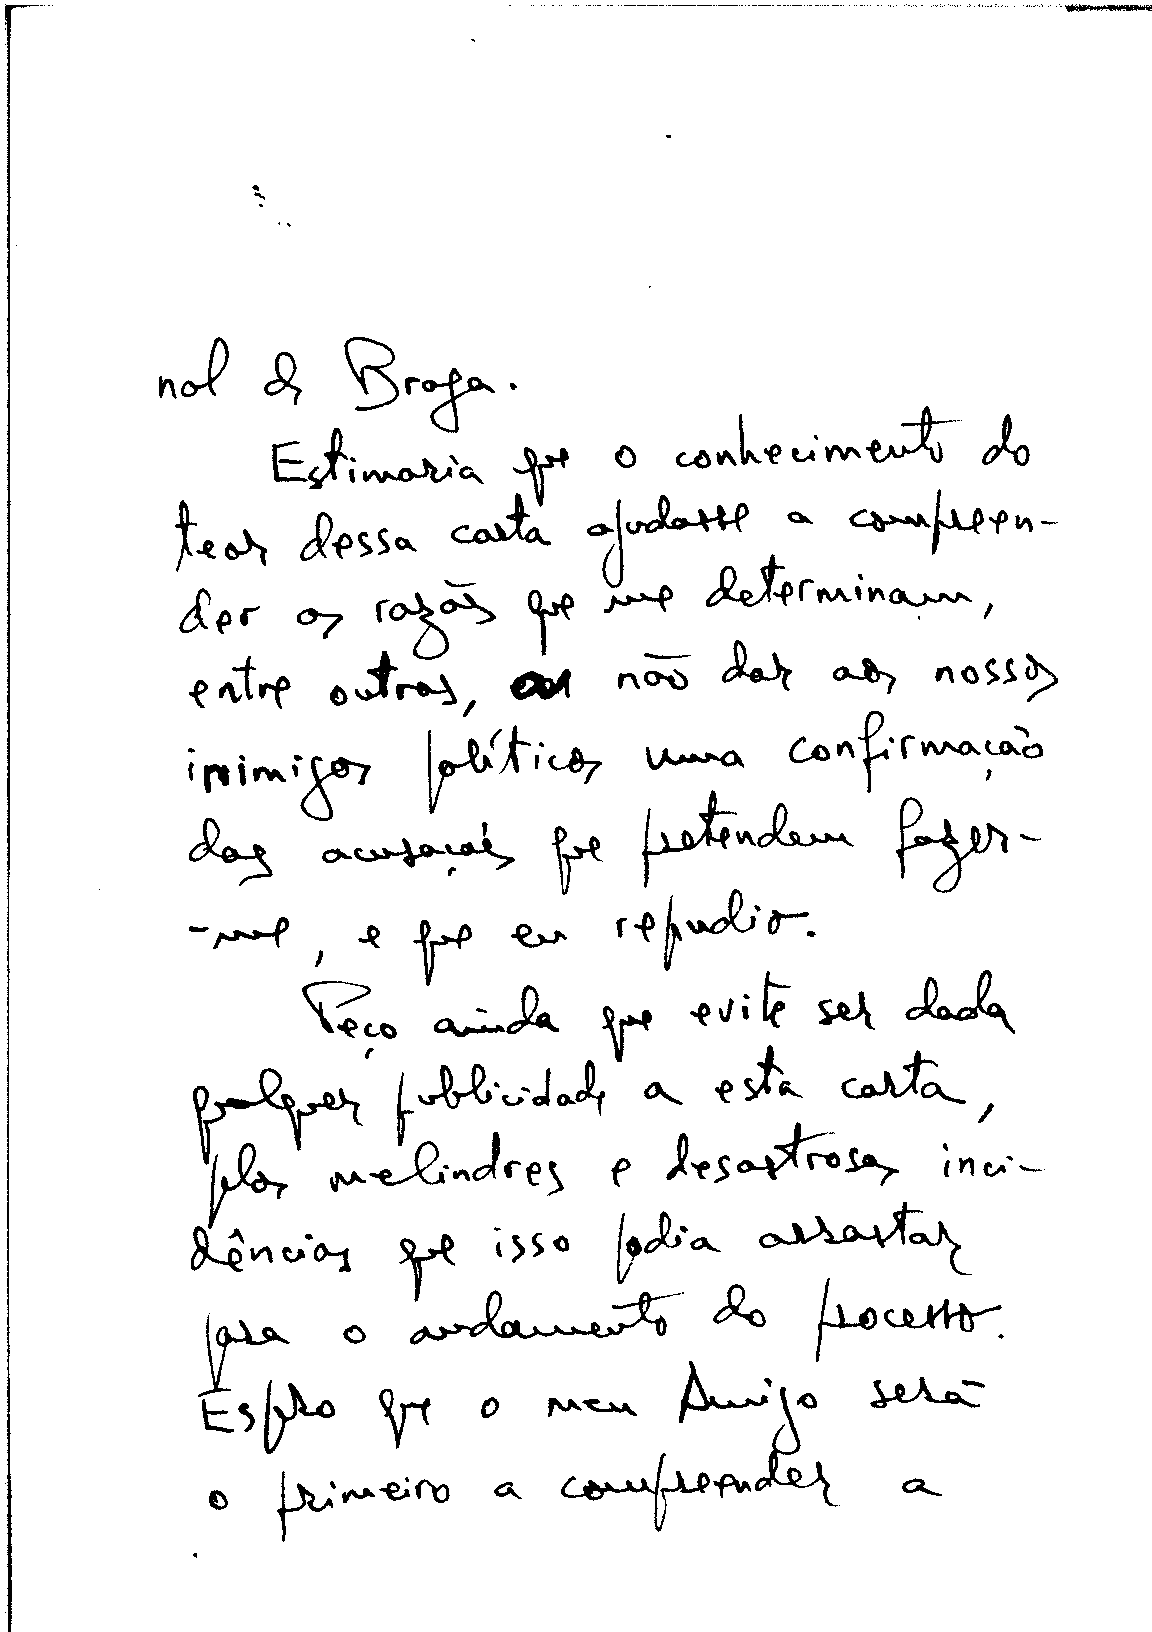 nal de Braga.
Estimaria que o conhecimento do
teor dessa carta ajudasse a compreen-
der as razões que me determinam,
entre outras, a não dar aos nossos
inimigos políticos uma confirmação
das acusações que pretendem fazer-
-me, e que eu repudio.
Peço ainda que evite ser dada
qualquer publicidade a esta carta,
pelos melindres e desastrosas inci-
dências que isso podia arrastar
para o andamento do processo.
Espero que o meu Amigo será
o primeiro a compreender a